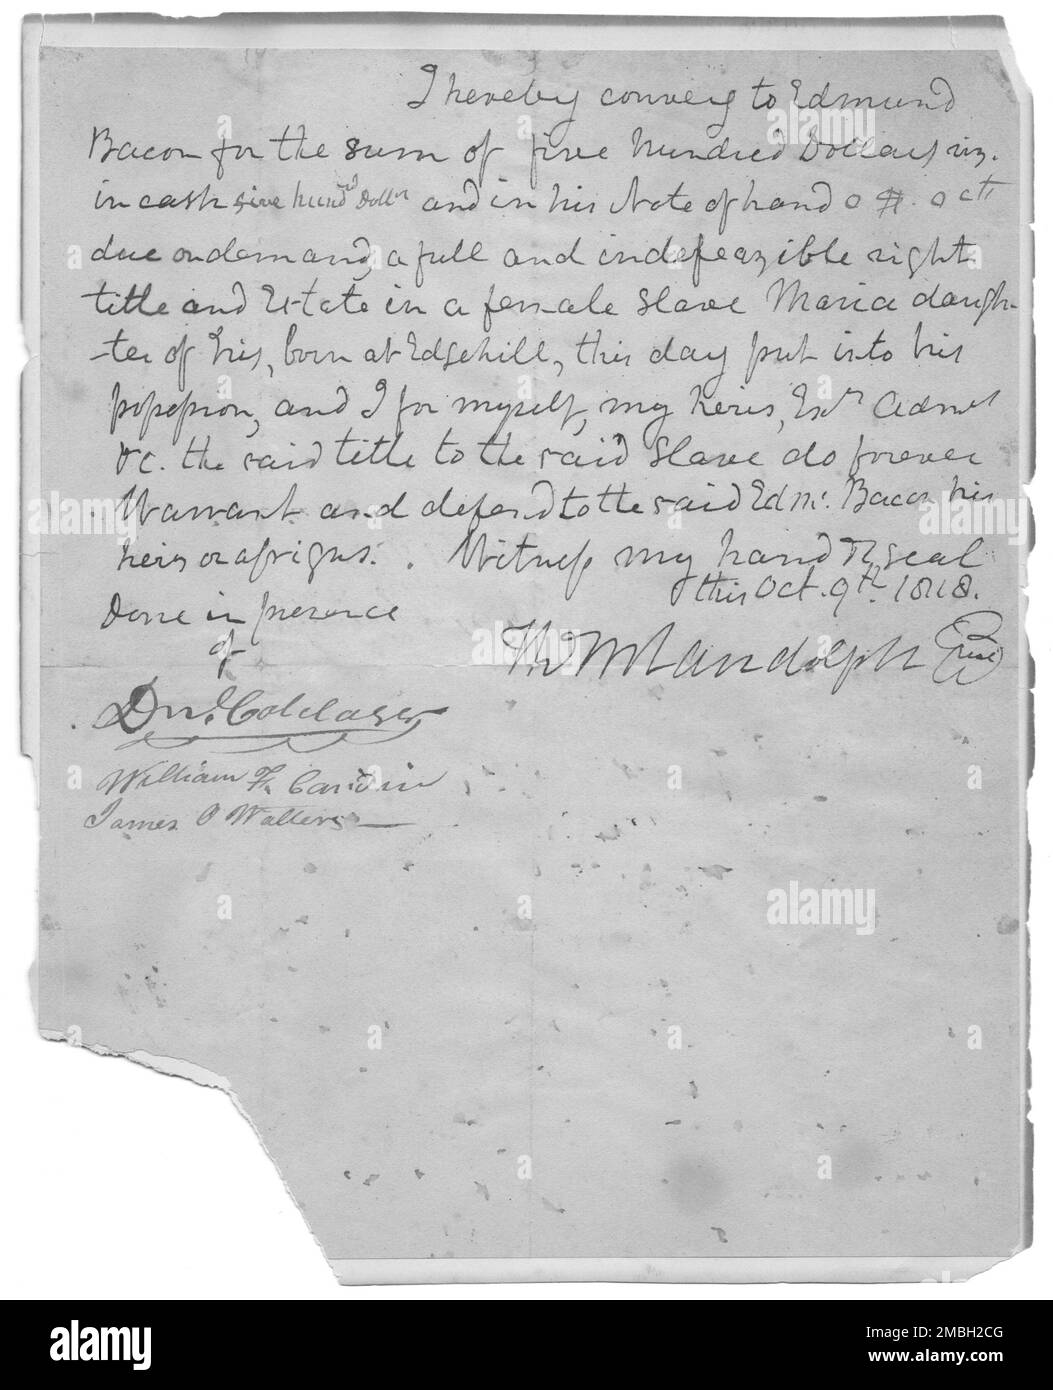 I hereby convey to Edmund
Bacon for the sum of five hundred Dollars viz.
in cash five hund.d Doll.rs and in his Note of hand 0 $. 0 cts
due on demand, a full and indefeazible right
title and Estate in a female slave Maria daugh-
-ter of Iris, born at Edgehill, this day put into his
possession, and I for myself, my heirs, Exrs Admrs
&c. the said title to the said slave do forever
Warrant and defend to the said Edm. Bacon his
heirs or assigns. Witness my hand & seal
this Oct. 9th. 1818.
Done in presence
of
Th M Randolph
William F. Cardin
James O Walters
alamy
Image ID: 2MBH2CG
www.alamy.com